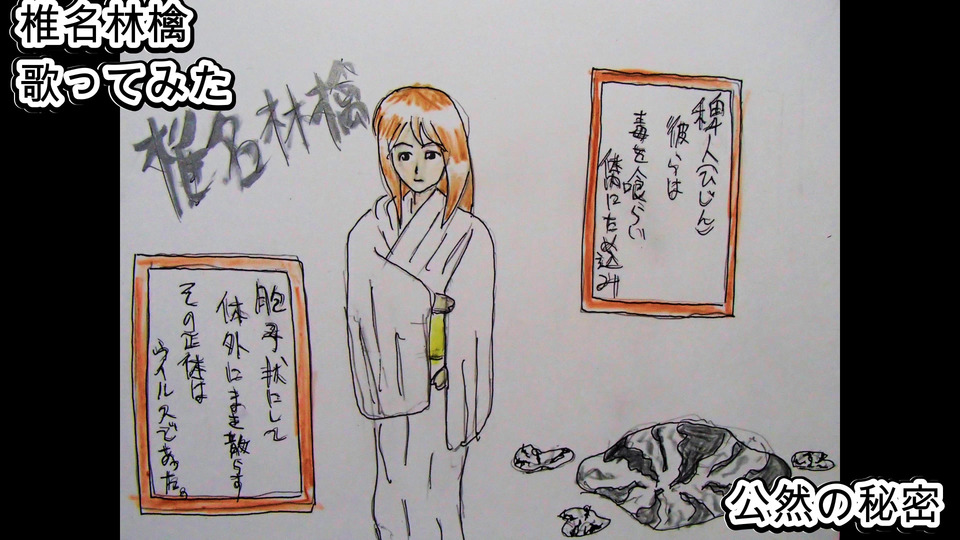 椎名林檎
歌ってみた
椎名林檎
稗人(ひじん)
彼らは
毒を喰らい
体内にため込み
胞子状にして
体外にまき散らす
その正体は
ウイルスであった。
公然の秘密